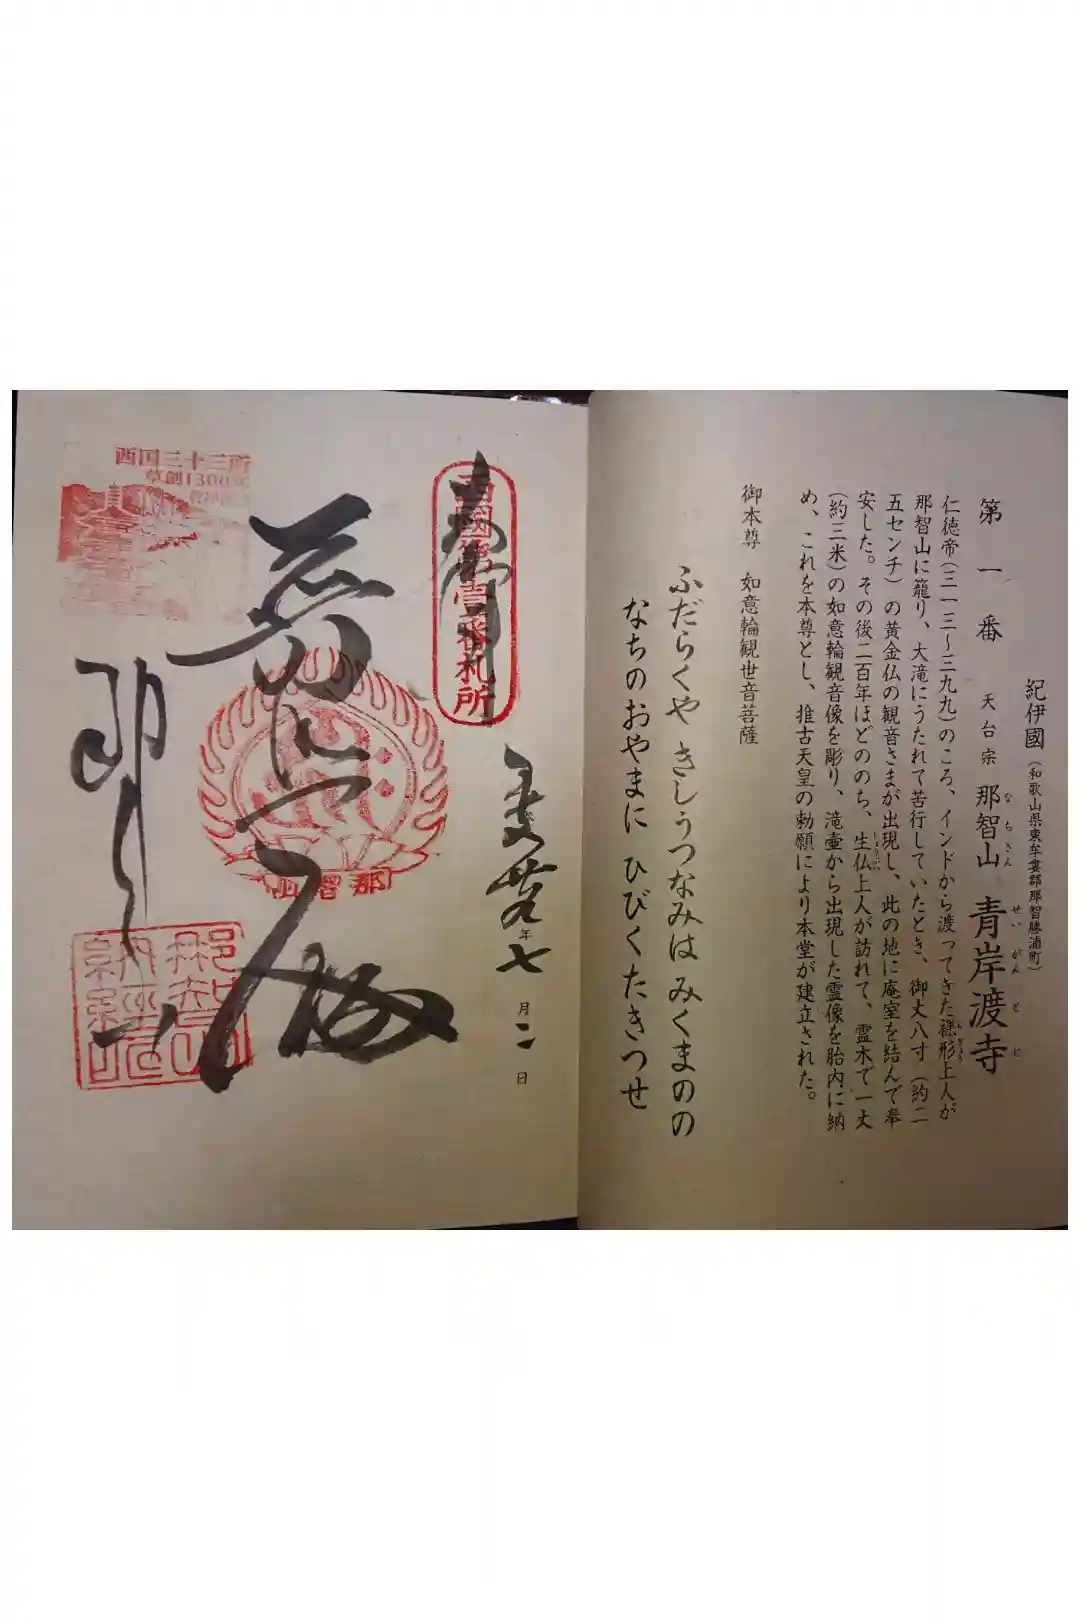 紀伊國(和歌山県東牟婁郡那智勝浦町)
第一番 天台宗 那智山 青岸渡寺
なちさん せいがんとじ
仁徳帝(三一三〜三九九)のころ、インドから渡ってきた裸形上人が
那智山に籠り、大滝にうたれて苦行していたとき、御丈八寸(約二
五センチ)の黄金仏の観音さまが出現し、此の地に庵室を結んで奉
安した。その後二百年ほどのち、生仏上人が訪れて、霊木で一丈
(約三米)の如意輪観音像を彫り、滝壷から出現した霊像を胎内に納
め、これを本尊とし、推古天皇の勅願により本堂が建立された。
御本尊 如意輪観世音菩薩
ふだらくや きしうつなみは みくまのの
なちのおやまに ひびくたきつせ
西國第壹番札所
年七月二日
那智山
西国三十三所
草創1300年